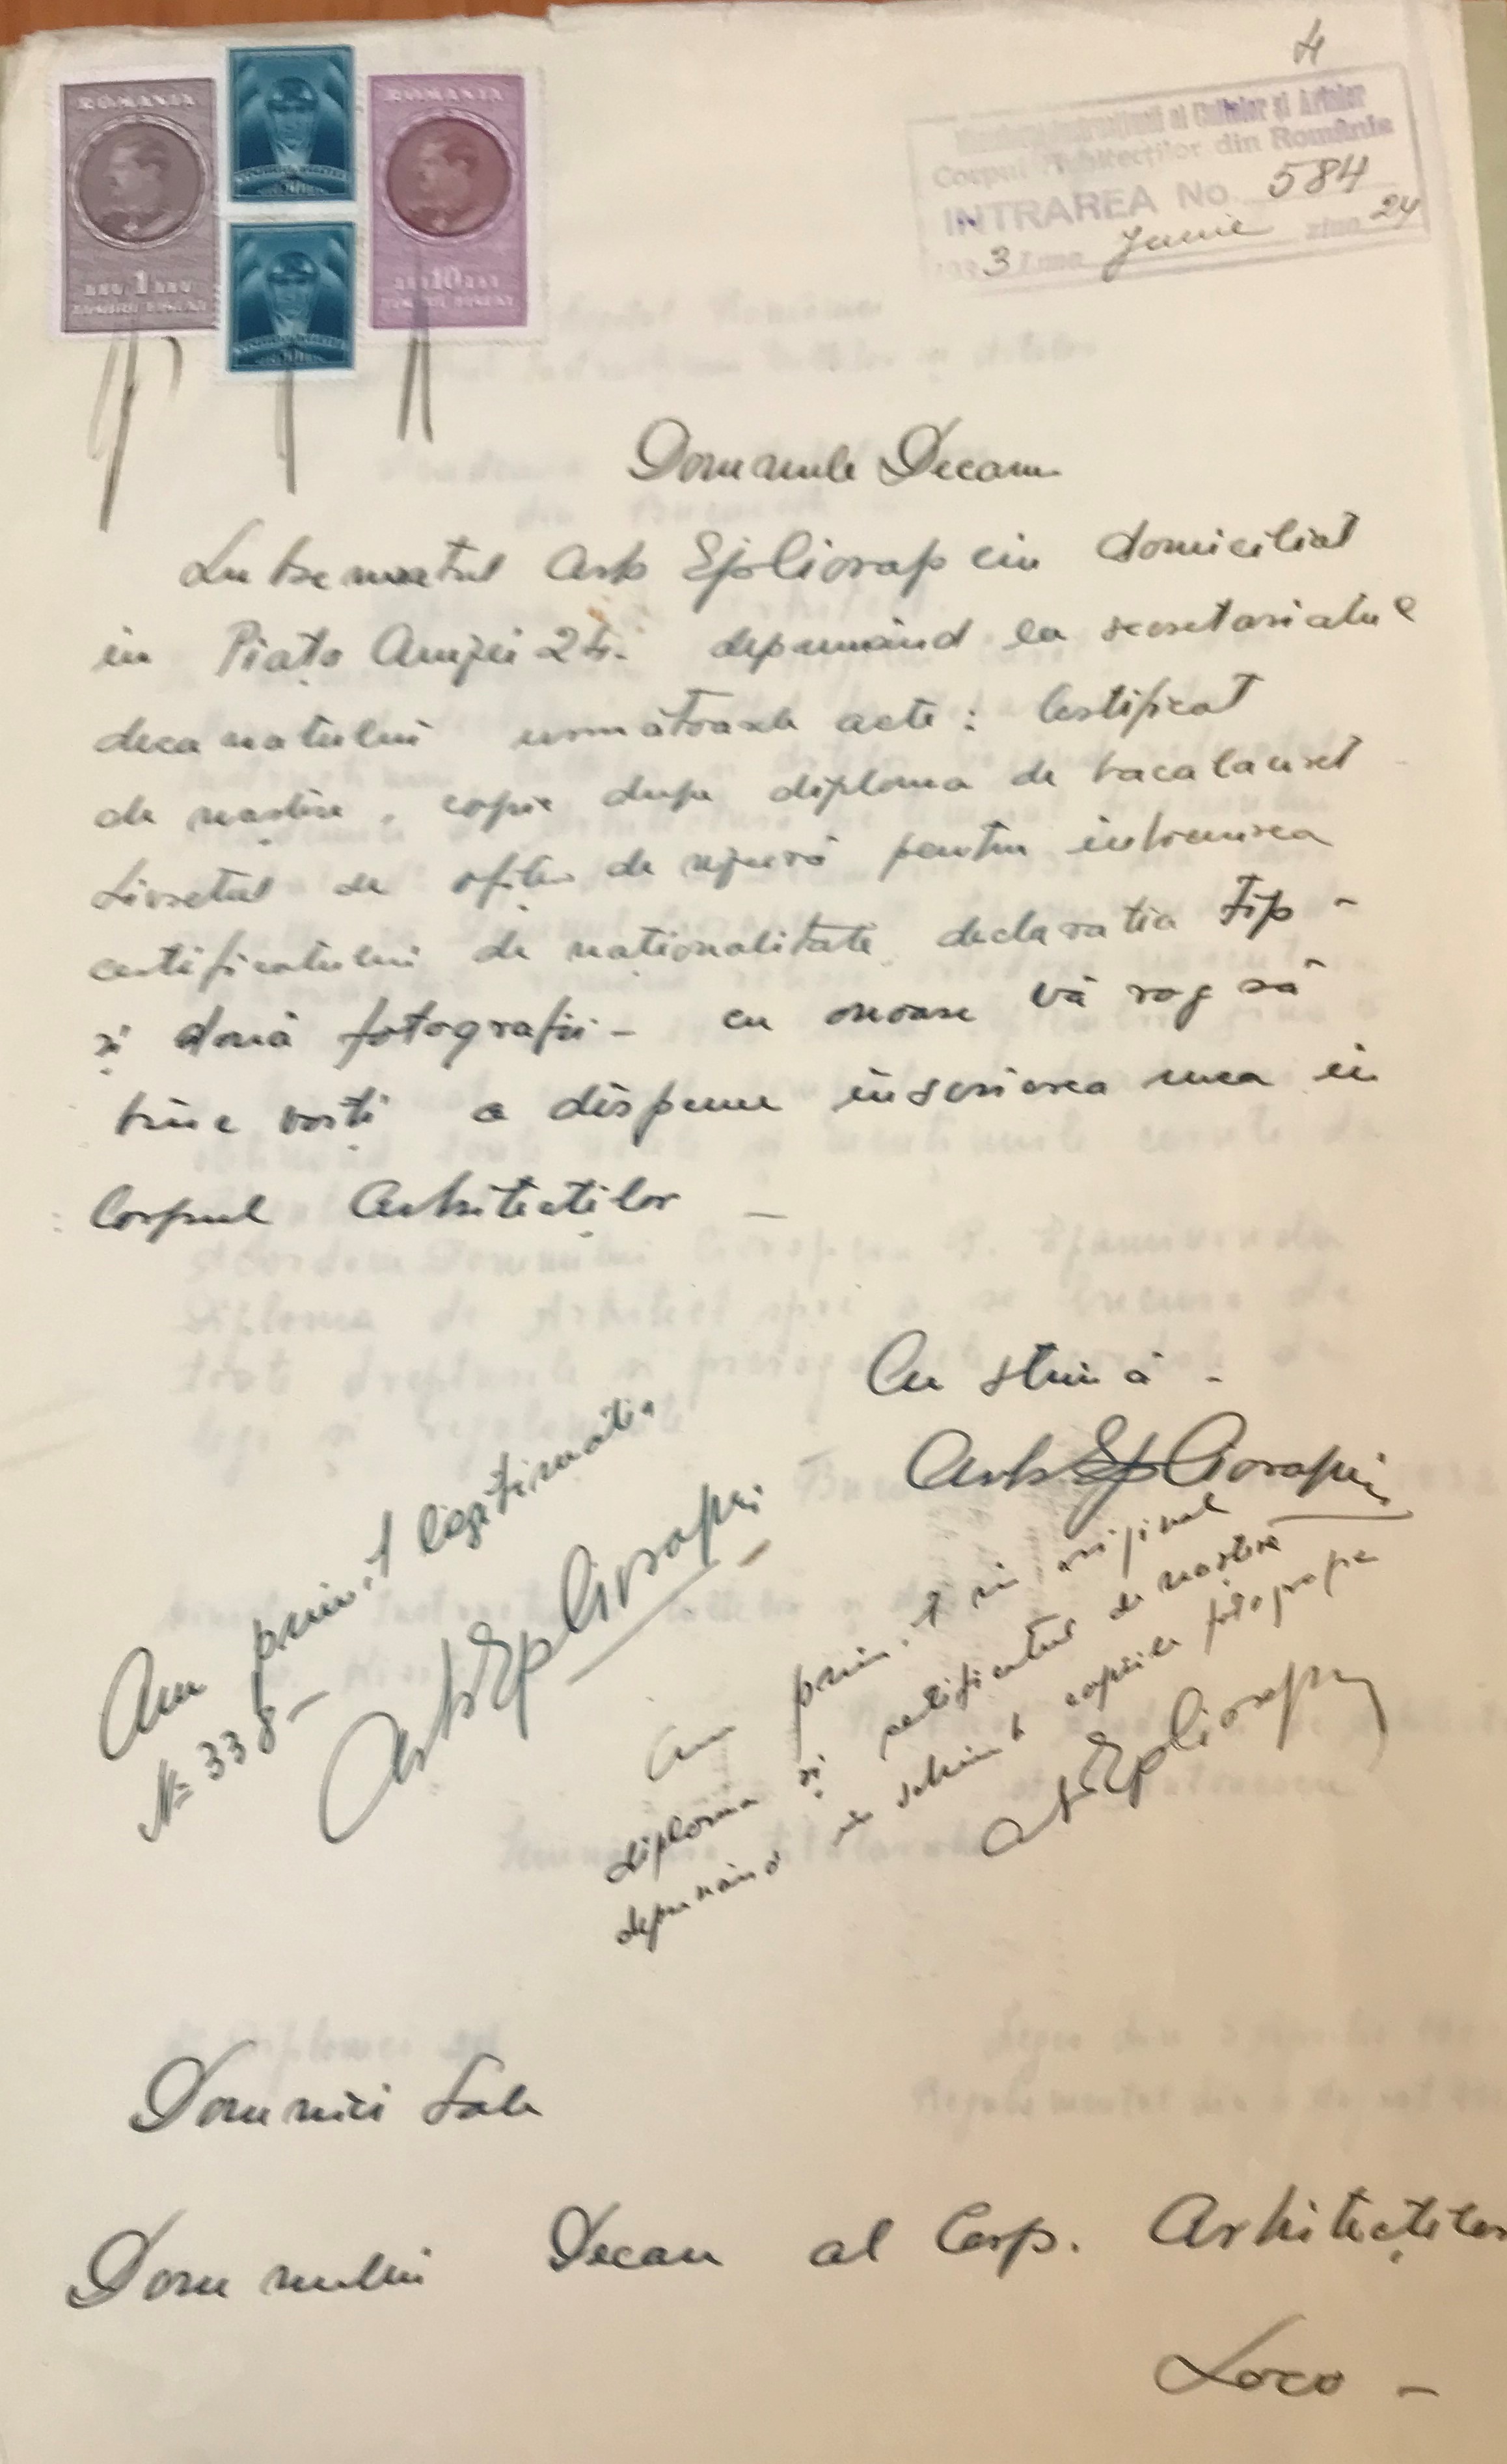 4
Ministerul Instrucțiunii al Cultelor și Artelor
Corpul Arhitecților din România
INTRAREA No. 584
193 3 Luna Junie ziua 24
ROMANIA
LEU 1 LEU
TIMBRU FISCAL
ROMANIA
LEI 10 LEI
TIMBRU FISCAL
Domnule Decan
Subsemnatul Arh Ep Liorapciu domiciliat
in Piața Amzei 24. depunând la secretariatul
decanatului următoarele acte: Certificat
de naștere, copie dupe diploma de bacalaureat
Livretul de ofițer de rezervă pentru întocmirea
certificatului de naționalitate, declaratia tip -
și două fotografii - cu onoare vă rog să
bine voiți a dispune înscrierea mea in
Corpul Arhitecților -
Cu stimă -
Arh Ep Liorapciu
Am primit legitimatia
No 338 -
Arh Ep Liorapciu
Am primit in original
diploma și certificatul de naștere
depunând in schimb copiile fotografe
Arh Ep Liorapciu
Domniei Sale
Domnului Decan al Corp. Arhitecților
Loco -